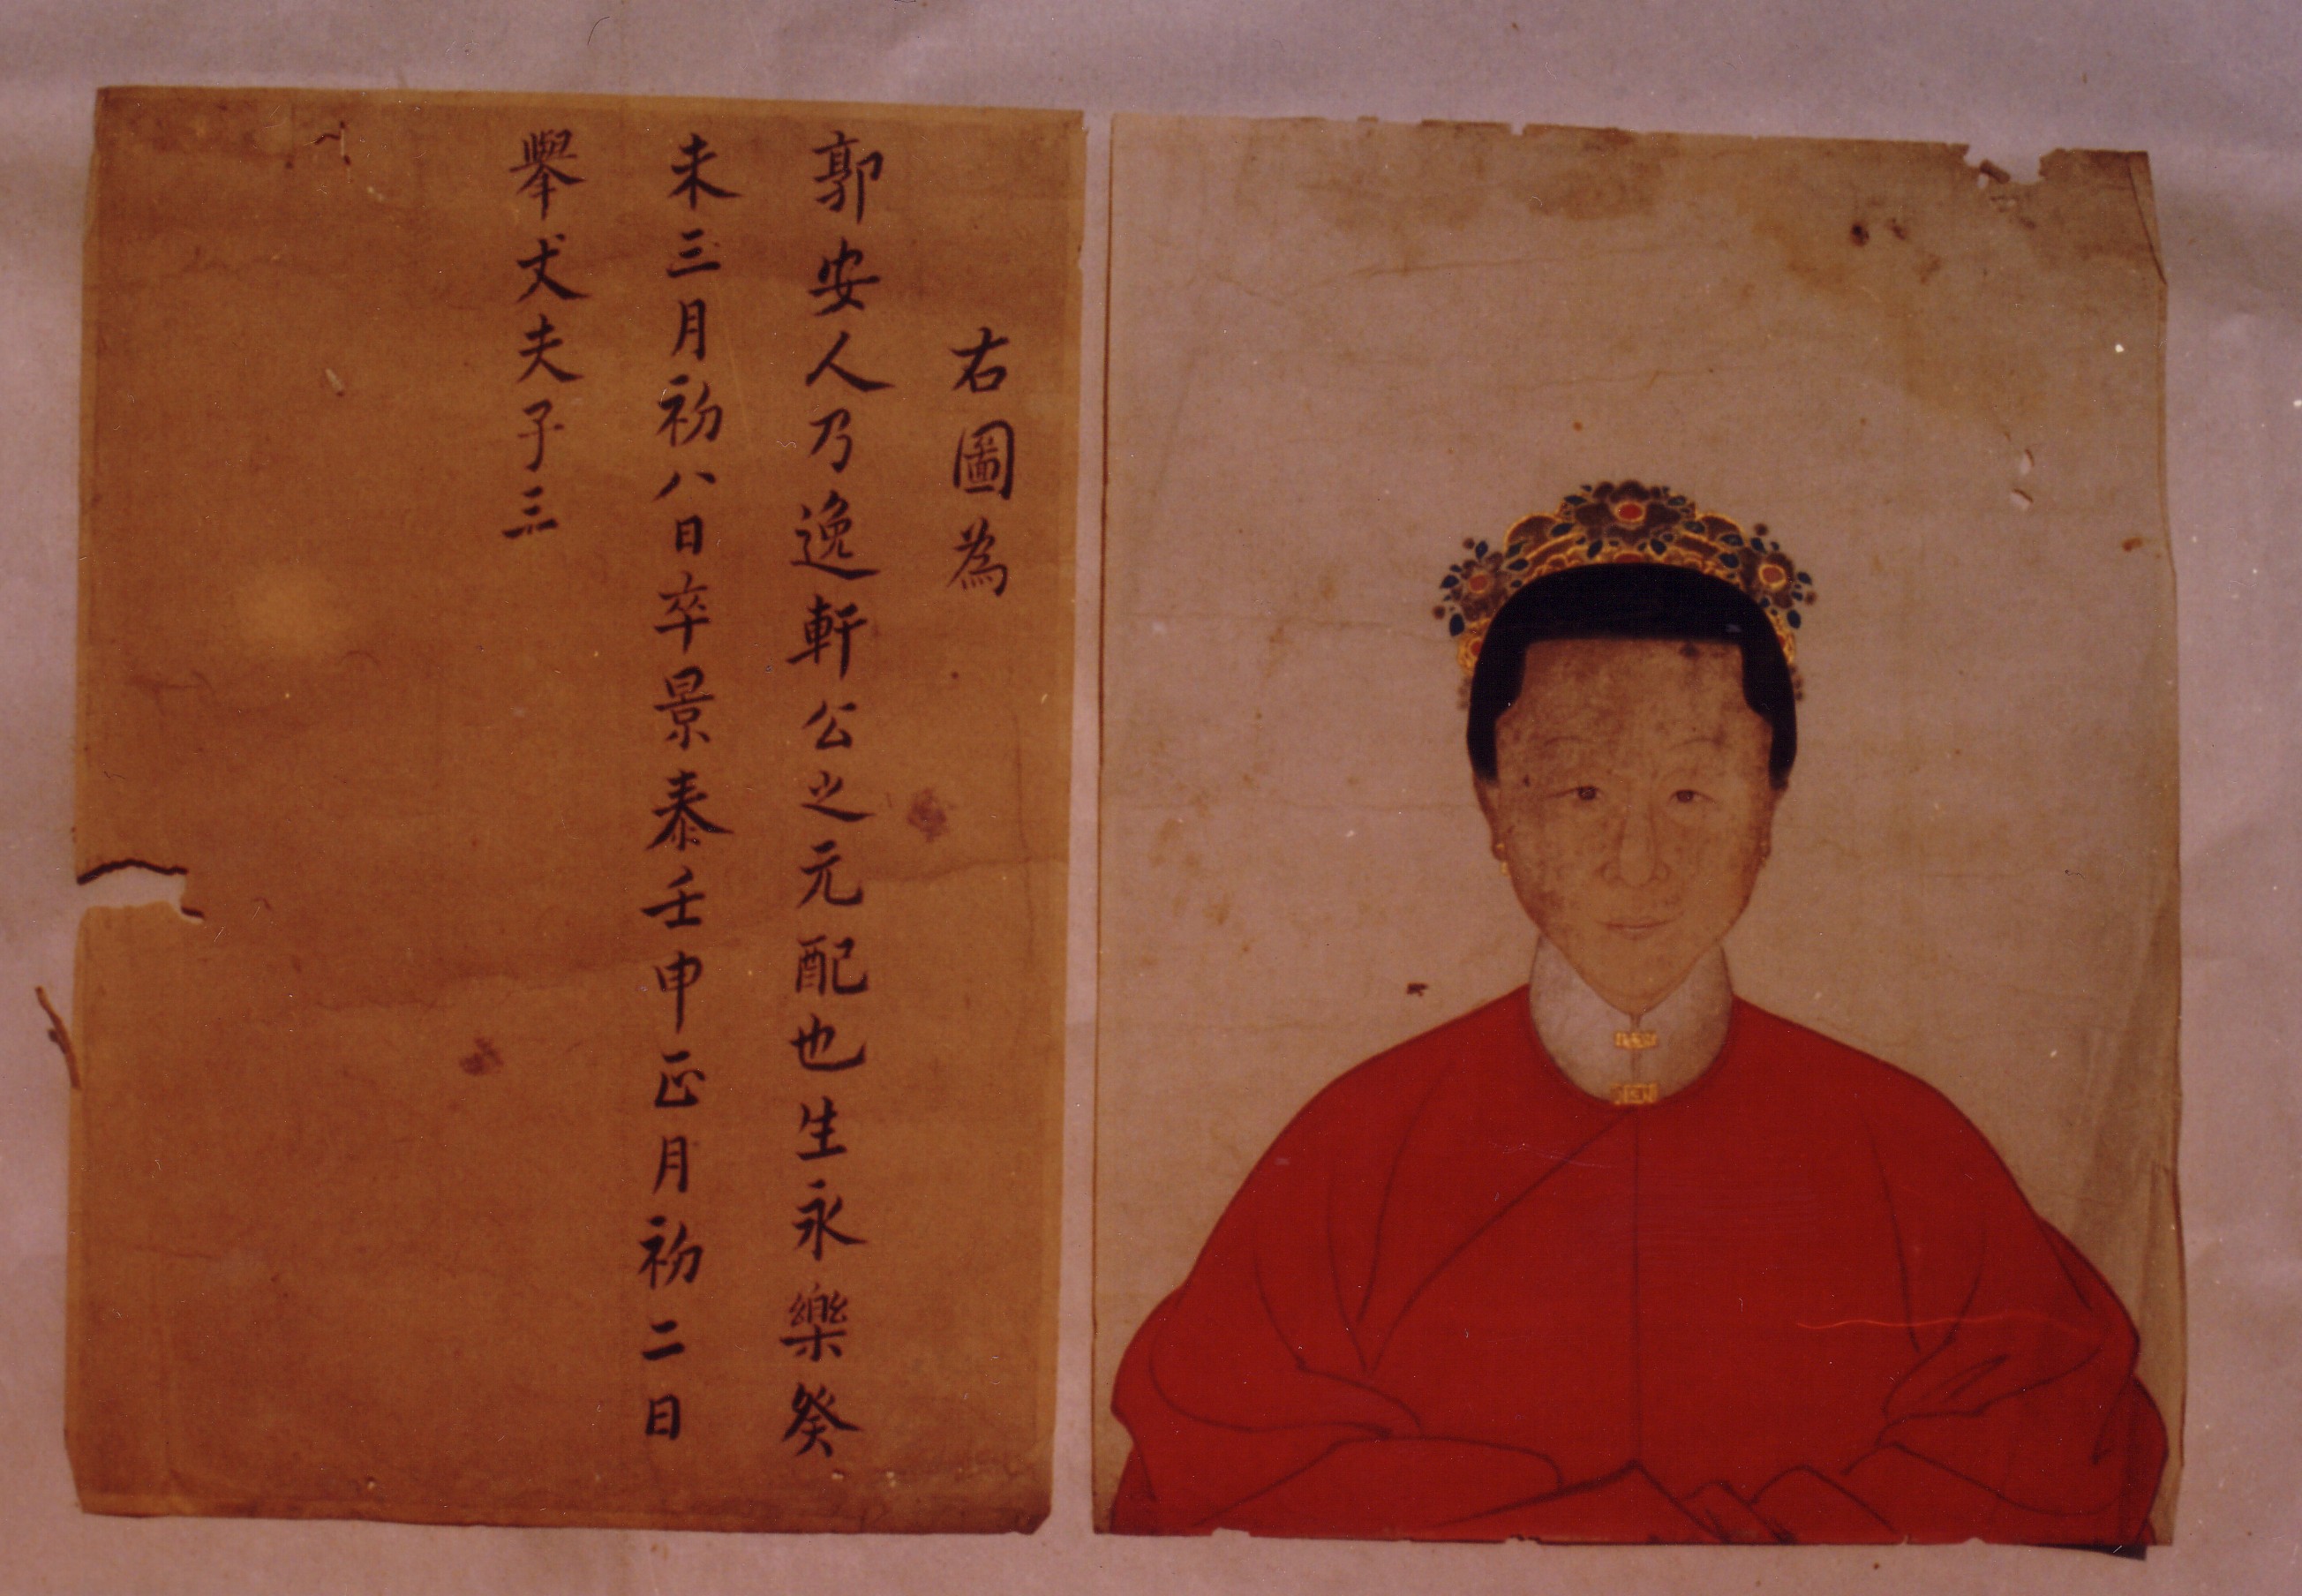 右圖為
郭安人乃逸軒公之元配也生永樂癸
未三月初八日卒景泰壬申正月初二日
舉丈夫子三